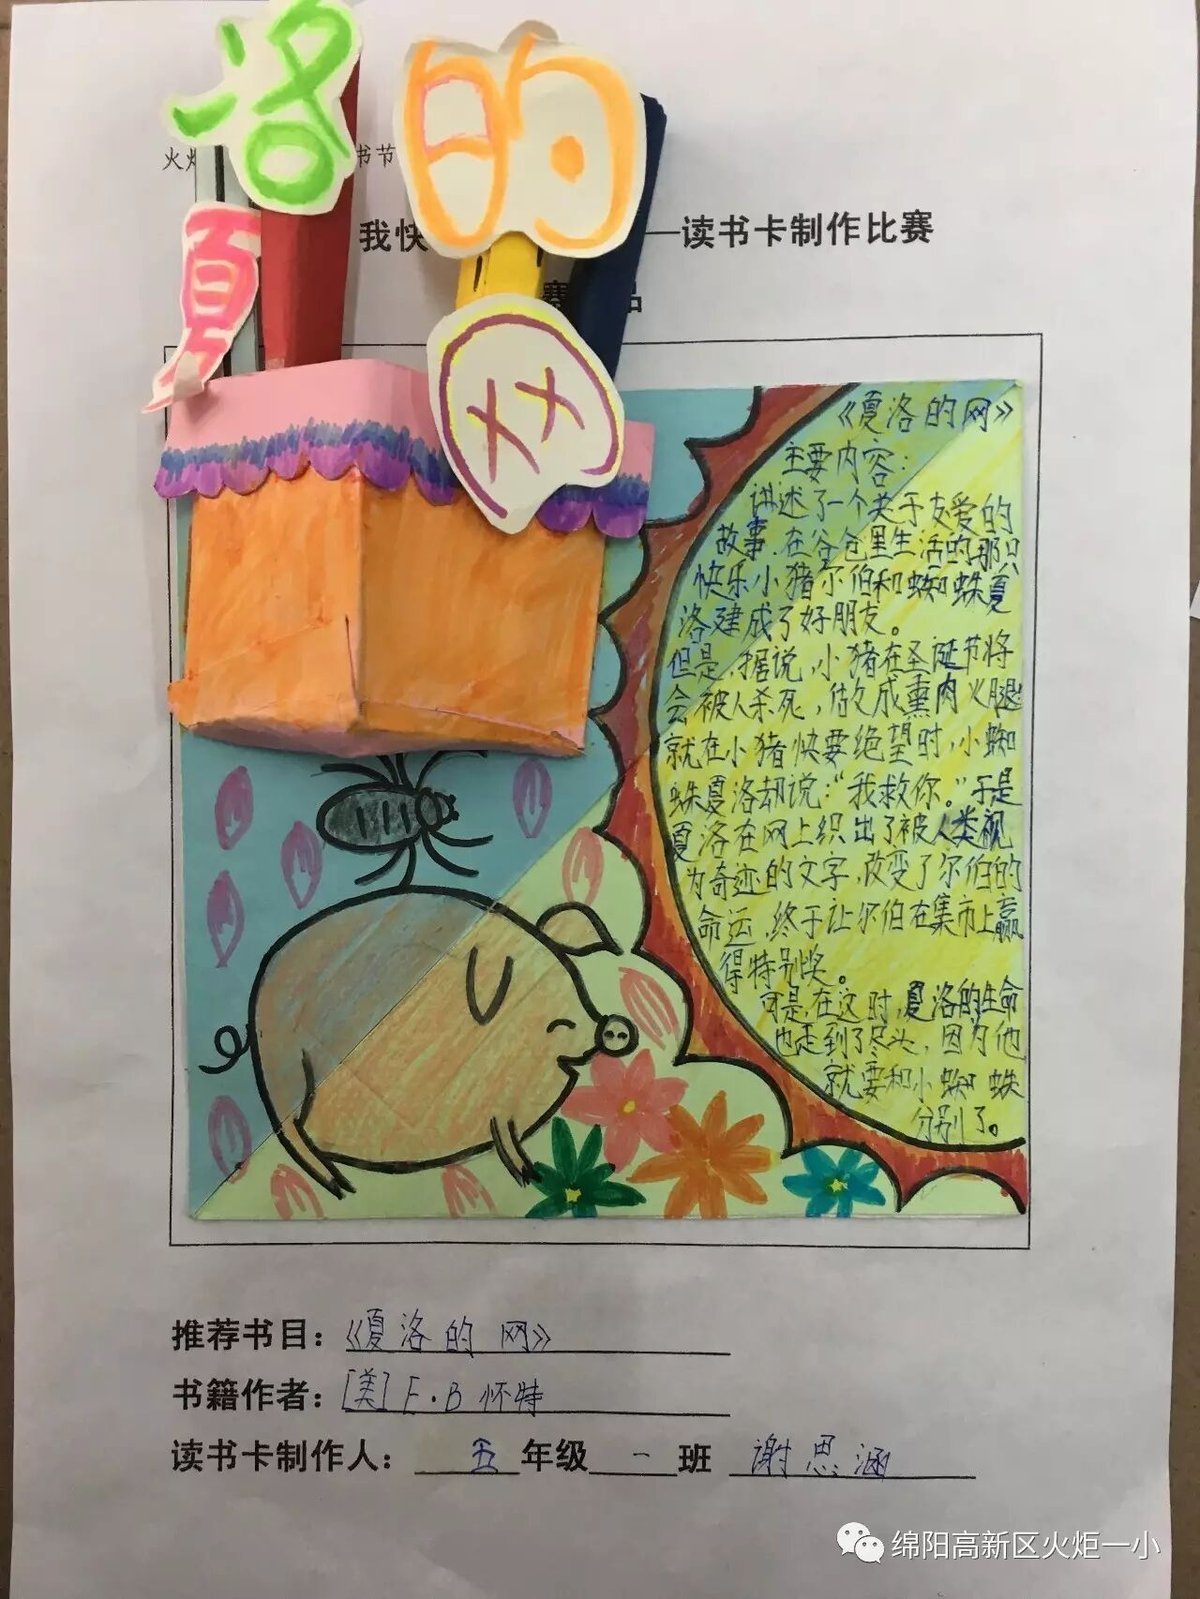 洛的
夏网
火炬
书节
我快
—读书卡制作比赛
赛
品
《夏洛的网》
主要内容：
讲述了一个关于友爱的
故事.在谷仓里生活的那只
快乐小猪尔伯和蜘蛛夏
洛建成了好朋友。
但是,据说,小猪在圣诞节将
会被人杀死,做成熏肉火腿
就在小猪快要绝望时,小蜘
蛛夏洛却说:“我救你。”于是
夏洛在网上织出了被人类视
为奇迹的文字,改变了尔伯的
命运,终于让尔伯在集市上赢
得特别奖。
可是,在这时,夏洛的生命
也走到了尽头,因为他
就要和小蜘蛛
分别了。
推荐书目：《夏洛的网》
书籍作者：[美]E·B怀特
读书卡制作人：五年级一班 谢思涵
绵阳高新区火炬一小